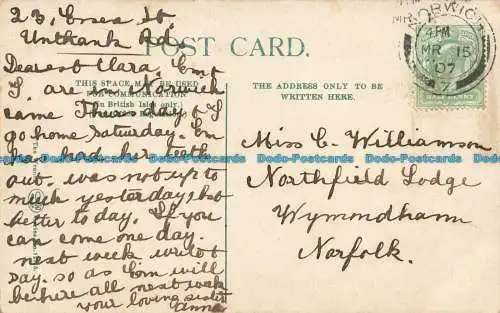 23, Essex St.
Unthank Rd.
POST CARD.
Dearest Clara, Em &
THIS SPACE MAY BE USED
I. are in Norwich
FOR COMMUNICATION
(In British Isles only.)
came Thursday & I
go home Saturday. Em
has had her tooth
out. was not up to
much yesterday, but
better to day. If you
can come one day.
next week write &
say. so as Em will
be here all next week
your loving sister
Anna
THE ADDRESS ONLY TO BE
WRITTEN HERE.
NORWICH
4 PM
MR 15
07
HALFPENNY
Miss C. Williamson
Northfield Lodge
Wymmdhamm
Norfolk.
Dodo-Postcards Dodo-Postcards Dodo-Postcards Dodo-Postcards Dodo-Postcards